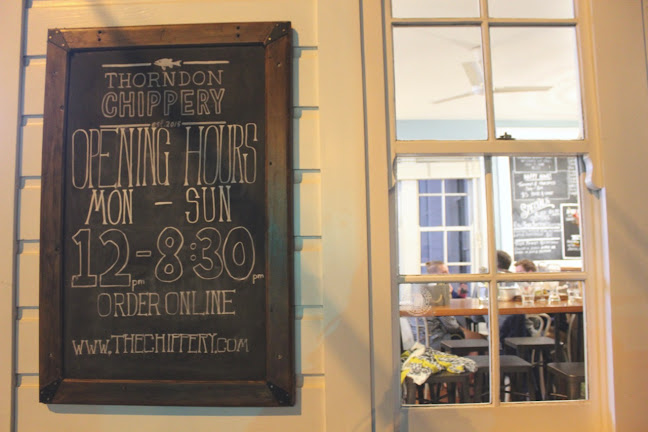 THORNDON
CHIPPERY
est 2016
OPENING HOURS
MON – SUN
12pm – 8:30pm
ORDER ONLINE
WWW.THECHIPPERY.COM